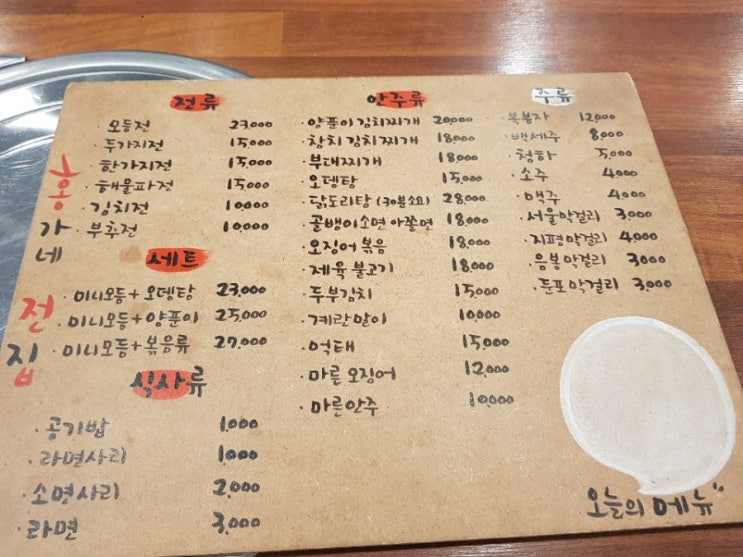 홍가네 전집
전류
모듬전 23,000
두가지전 15,000
한가지전 15,000
해물파전 15,000
김치전 10,000
부추전 10,000
세트
· 미니모듬+오뎅탕 23,000
· 미니모듬+양푼이 25,000
· 미니모듬+볶음류 27,000
식사류
· 공기밥 1,000
· 라면사리 1,000
· 소면사리 2,000
· 라면 3,000
안주류
양푼이김치찌개 20,000
· 참치김치찌개 18,000
· 부대찌개 18,000
· 오뎅탕 15,000
· 닭도리탕 (30분소요) 28,000
· 골뱅이소면 아쫄면 18,000
· 오징어볶음 18,000
· 제육불고기 18,000
· 두부김치 15,000
· 계란말이 10,000
· 먹태 15,000
· 마른오징어 12,000
· 마른안주 10,000
주류
· 복분자 12,000
· 백세주 8,000
· 청하 5,000
· 소주 4,000
· 맥주 4,000
· 서울막걸리 3,000
· 지평막걸리 4,000
· 음봉막걸리 3,000
· 둔포막걸리 3,000
오늘의 메뉴"